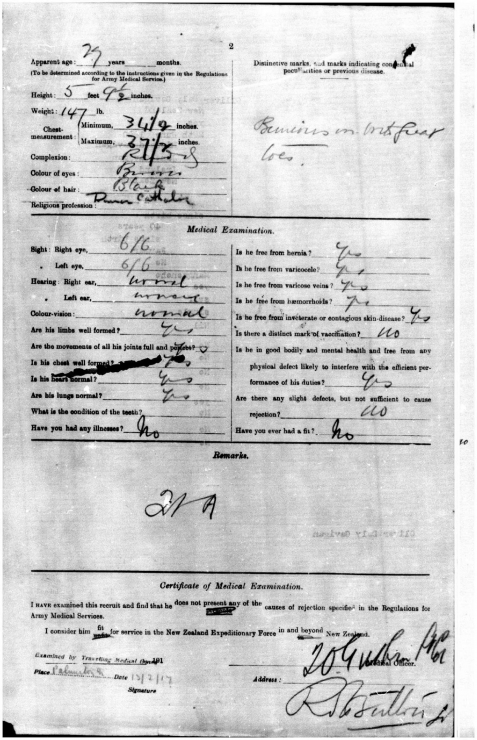 2
Apparent age: 29 years months.
(To be determined according to the instructions given in the Regulations for Army Medical Service.)
Height: 5 feet 9½ inches.
Weight: 147 lb.
Chest-measurement: Minimum, 34½ inches.
Maximum, 37½ inches.
Complexion:
Colour of eyes: Brown
Colour of hair: Black
Religious profession: Roman Catholic
Distinctive marks, and marks indicating congenital peculiarities or previous disease.
Bunions on both great
toes.
Medical Examination.
Sight: Right eye, 6/6
„ Left eye, 6/6
Hearing: Right ear, normal
„ Left ear, normal
Colour-vision: normal
Are his limbs well formed? Yes
Are the movements of all his joints full and perfect? Yes
Is his chest well formed? Yes
Is his heart normal? Yes
Are his lungs normal? Yes
What is the condition of the teeth?
Have you had any illnesses? No
Is he free from hernia? Yes
Is he free from varicocele? Yes
Is he free from varicose veins? Yes
Is he free from hæmorrhoids? Yes
Is he free from inveterate or contagious skin-disease? Yes
Is there a distinct mark of vaccination? No
Is he in good bodily and mental health and free from any
physical defect likely to interfere with the efficient per-
formance of his duties? Yes
Are there any slight defects, but not sufficient to cause
rejection? No
Have you ever had a fit? No
Remarks.
A
Certificate of Medical Examination.
I HAVE examined this recruit and find that he does not present any of the causes of rejection specified in the Regulations for
Army Medical Services.
I consider him fit for service in the New Zealand Expeditionary Force in and beyond New Zealand.
Examined by Travelling Medical Board, 191
Place Date 13/2/17
Signature
Medical Officer.
Address: